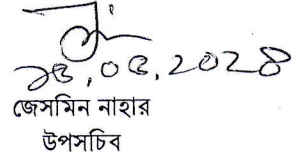 ২৫.০৫.২০২৪
জেসমিন নাহার
উপসচিব